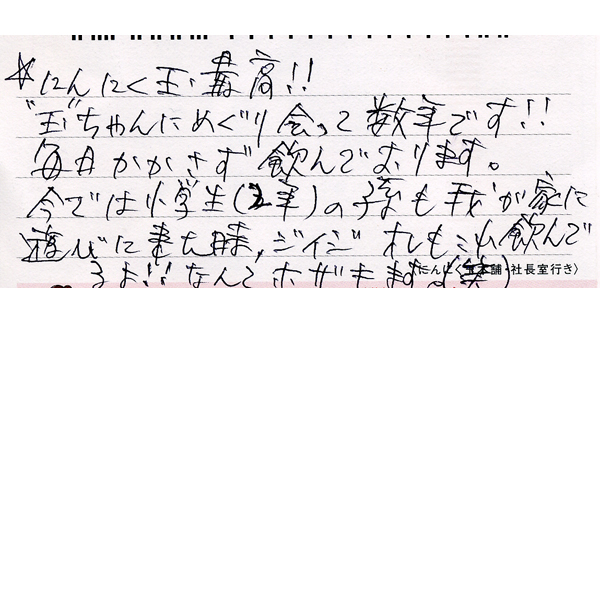 ☆にんにく玉 最高!!
"玉"ちゃんにめぐり会って数年です!!
毎日かかさず飲んでおります。
今では小学生(2年)の孫も我が家に
遊びに来た時、ジイジ オレもコレ飲んで
るよ!!なんてホザキます。(笑)
(にんにく玉本舗・社長室行き)